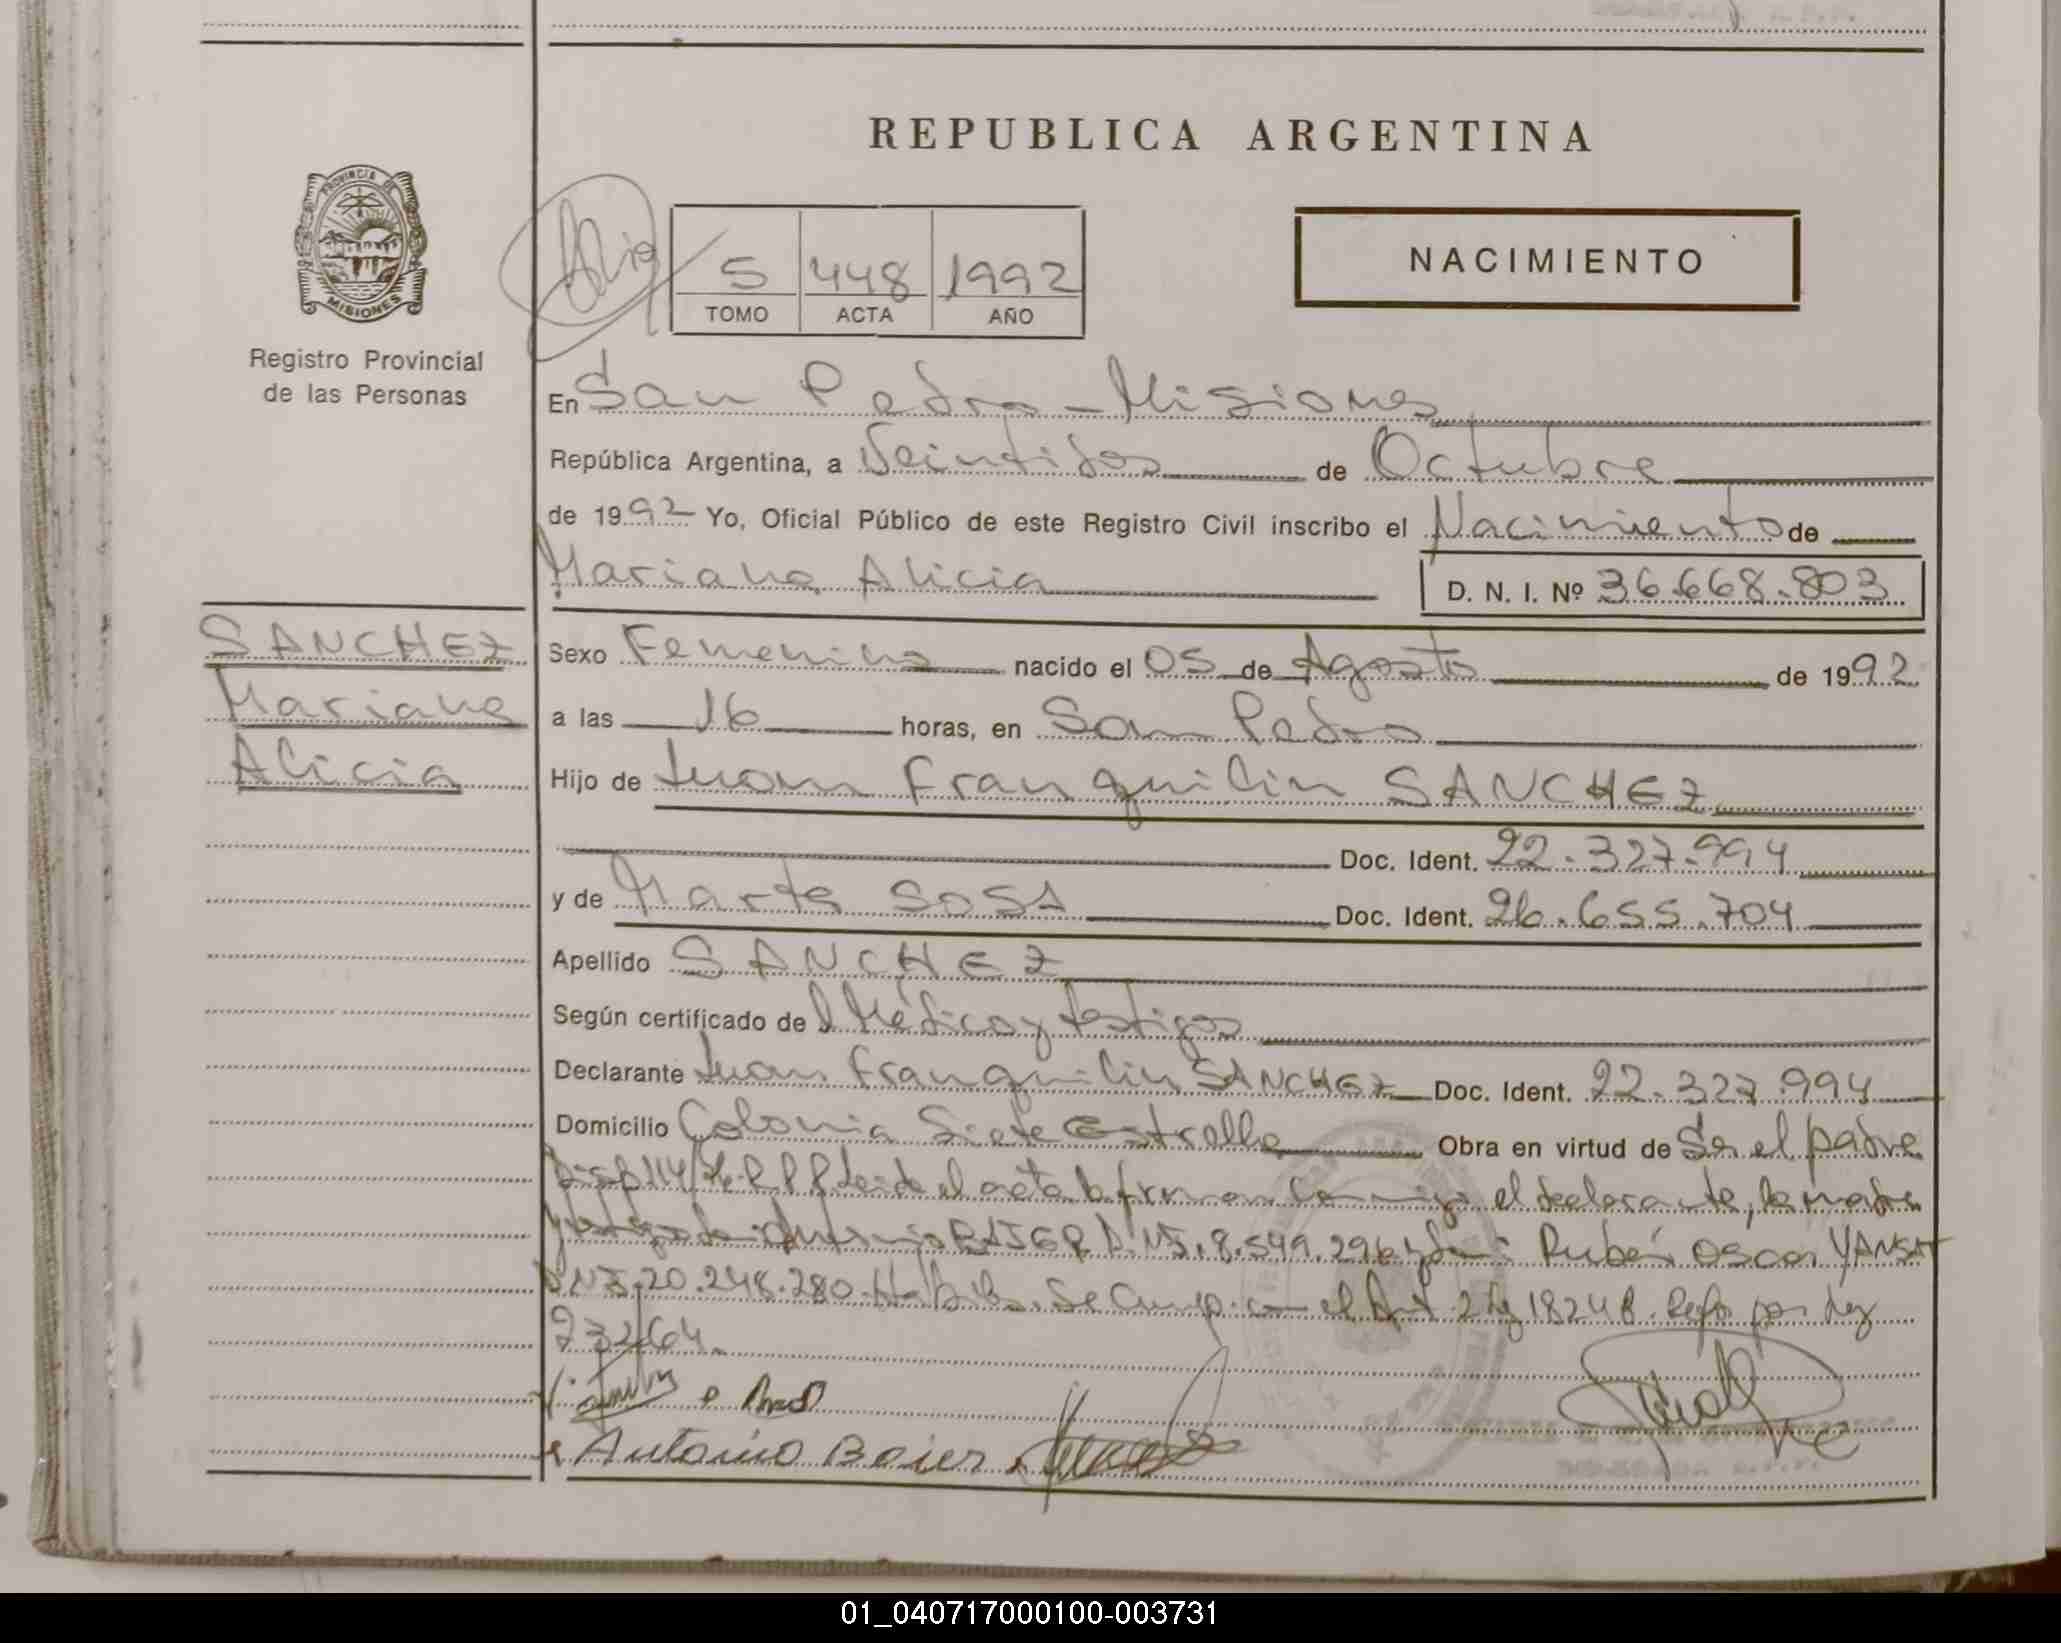 REPUBLICA ARGENTINA
PROVINCIA DE
MISIONES
Registro Provincial
de las Personas
5 448 1992
TOMO ACTA AÑO
NACIMIENTO
En San Pedro - Misiones
República Argentina, a Veintidos de Octubre
de 1992 Yo, Oficial Público de este Registro Civil inscribo el Nacimiento de
Mariana Alicia D. N. I. Nº 36.668.803
SANCHEZ
Mariana
Alicia
Sexo Femenino nacido el 05 de Agosto de 1992
a las 16 horas, en San Pedro
Hijo de Juan Franquilin SANCHEZ
Doc. Ident. 22.327.994
y de Marta SOSA Doc. Ident. 26.655.704
Apellido SANCHEZ
Según certificado de Médico y testigos
Declarante Juan Franquilin SANCHEZ Doc. Ident. 22.327.994
Domicilio Colonia Siete Estrella Obra en virtud de Ser el padre
Disp 114/ R P P Leida el acta la firman conmigo el declarante, la madre
y testigos DNI. 8.549.296 y Rubén Oscar
DNI 20.248.280 Habiles. Se Cump. con el Art 2 Ley 18248. Refor por Ley
23264.
Antonio Boier
01_040717000100-003731